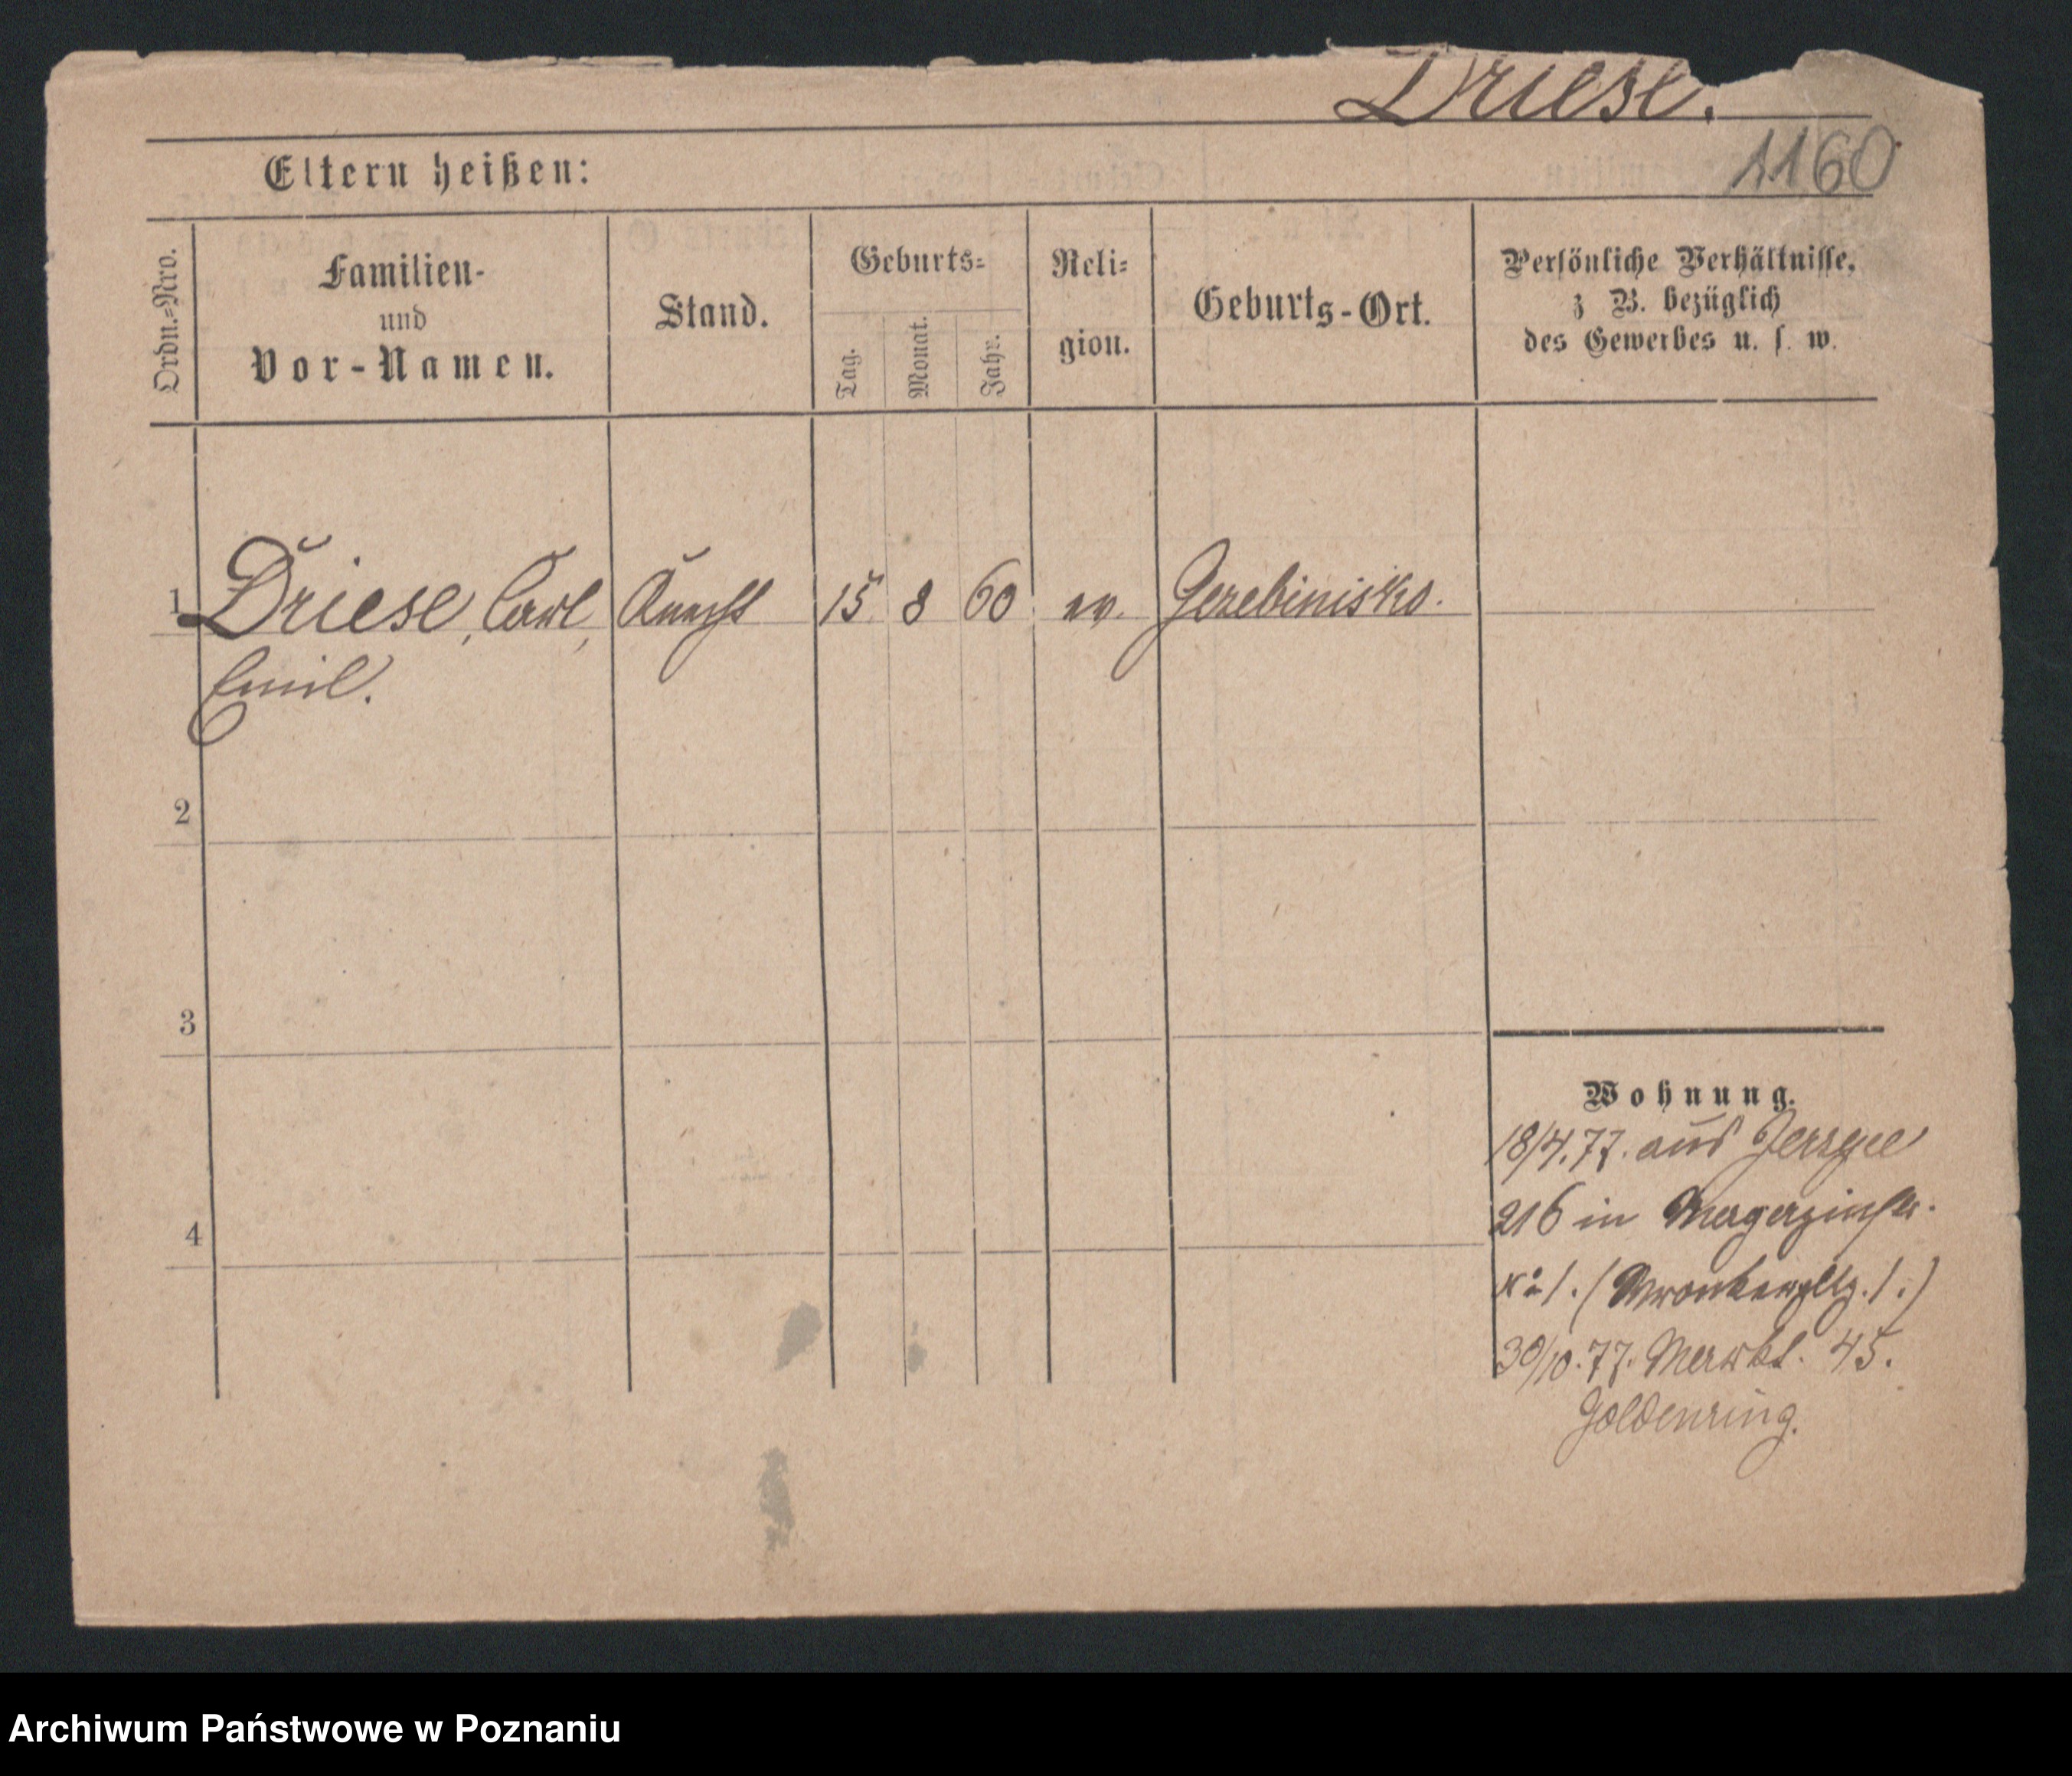 Driese.
1160
Eltern heißen:
Ordn.-Nro.
Familien-
und
Vor-Namen.
Stand.
Geburts-
Tag.
Monat.
Jahr.
Reli-
gion.
Geburts-Ort.
Persönliche Verhältnisse,
z B. bezüglich
des Gewerbes u. s. w.
1 Driese, Carl, Knecht 15 8 60 ev. Gerebinisko.
Emil.
2
3
4
Wohnung.
18/4.77. aus
216 in Magazinstr.
No 1. (Wronkerpltz. 1.)
30/10.77. Markt. 45.
Goldenring.
Archiwum Państwowe w Poznaniu